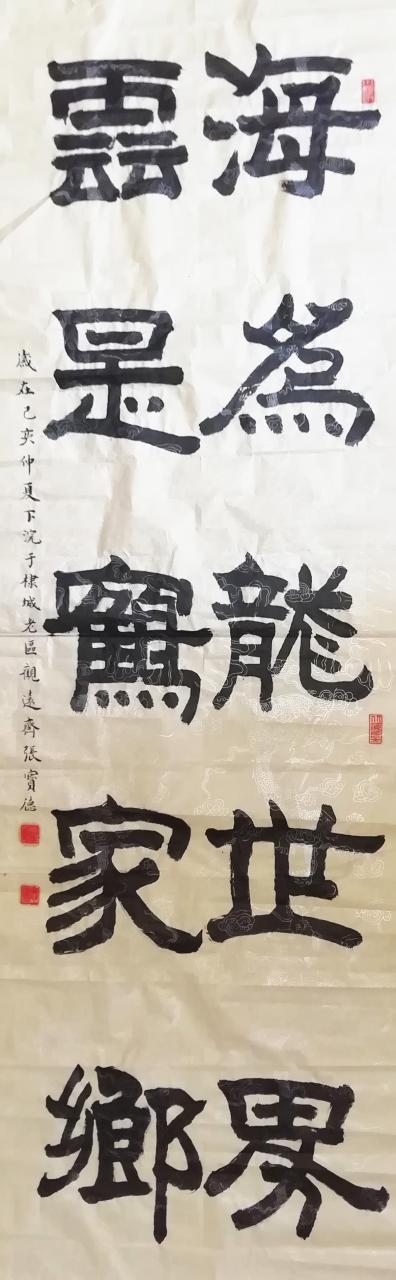 海為龍世界
雲是鶴家鄉
歲在己亥仲夏下浣于棣城老區觀遠齊張寶德